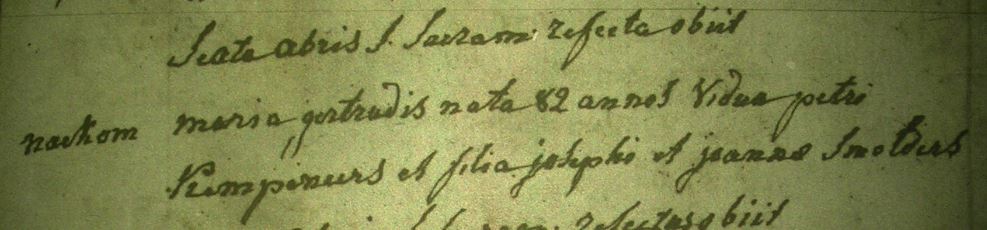 Scate abris S. Sacram: refecta obiit
maria gertrudis nata 82 annos Vidua petri
nackom
Kemperneurs et filia josephi et joannæ Smolders
refectus obiit